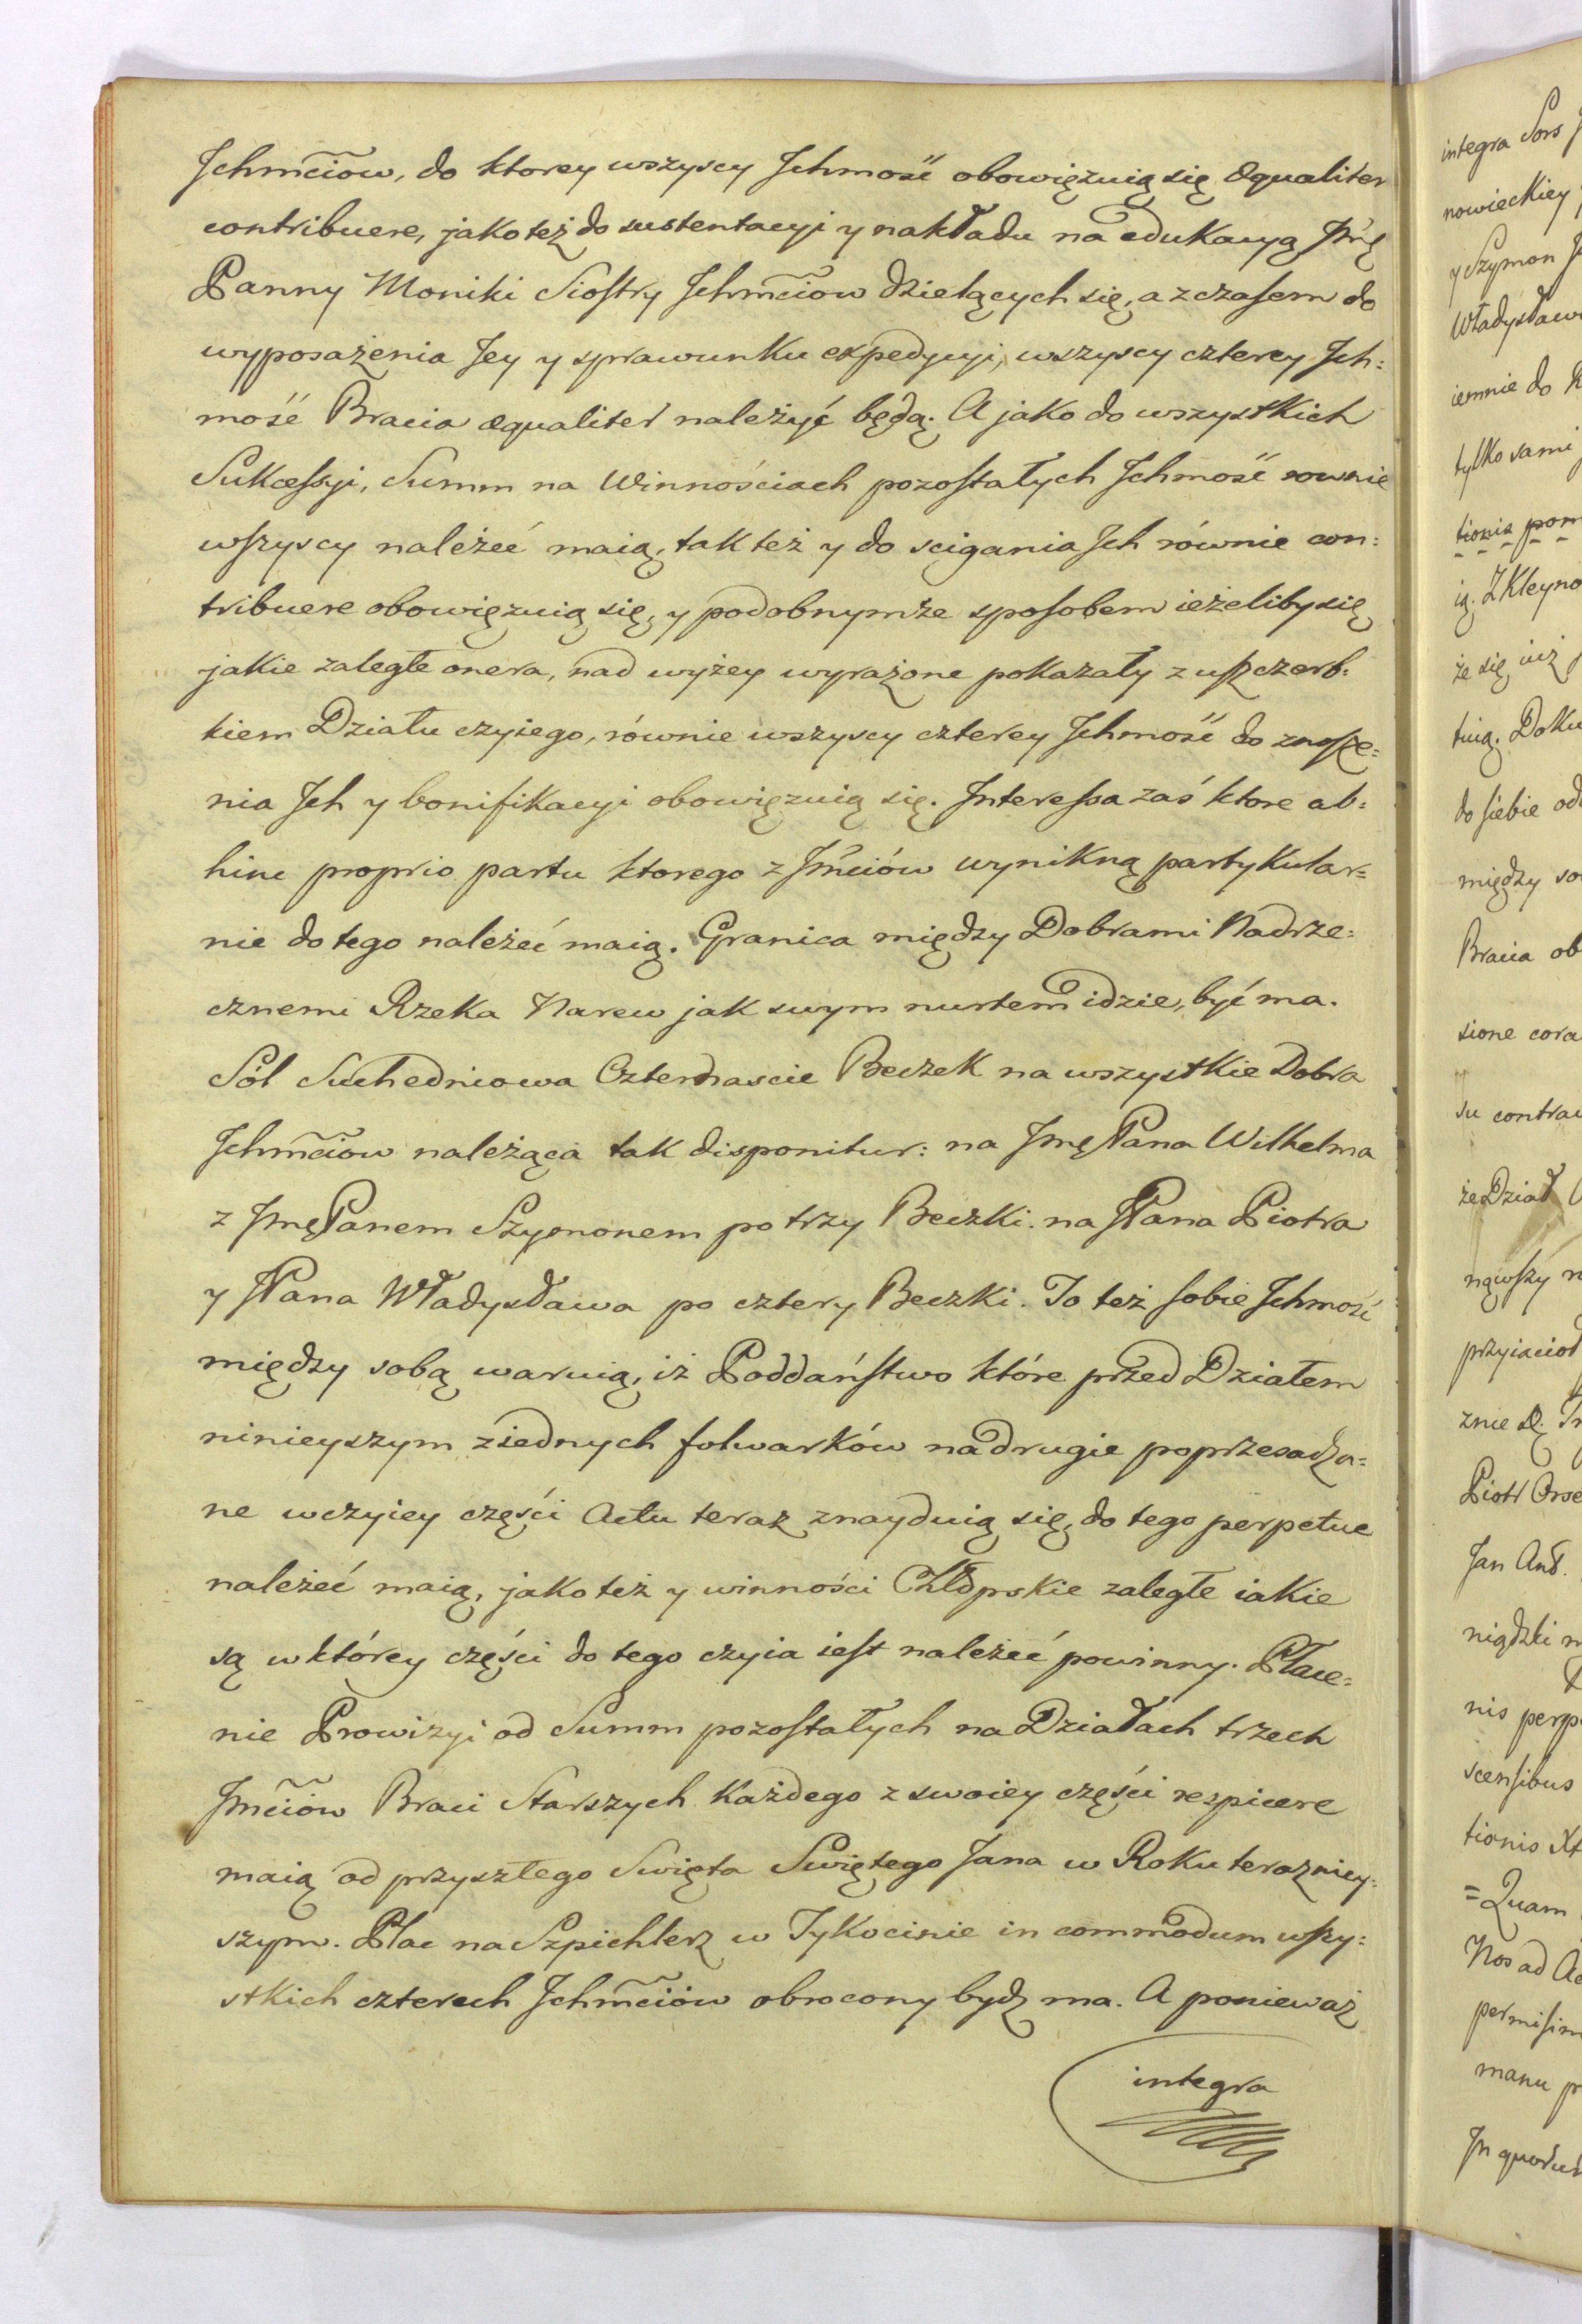 Jchmciow, do ktorey wszyscy Jchmość obowięzuią się æqualiter
contribuere, jako też do sustentacyi y nakładu na edukacyą Jmę
Panny Moniki Siostry Jchmciow dzielących się, a z czasem do
wyposażenia Jey y sprawunku expedycyi, wszyscy czterey Jch:
mość Bracia æqualiter należyć będą. A jako do wszystkich
Sukcessyi, Summ na Winnościach pozostałych Jchmość rownie
wszyscy należeć maią, tak też y do scigania Jch równie con:
tribuere obowięzuią się, y podobnymże sposobem ieżeliby się
jakie zaległe onera, nad wyżey wyrażone pokazały z uszczerb:
kiem Działu czyiego, równie wszyscy czterey Jchmość do znosze:
nia Jch y bonifikacyi obowięzuią się. Interessa zaś ktore ab:
hinc proprio partu ktorego z Jmciów wynikną partykular=
nie do tego należeć maią. Granica między Dobrami Nadrze:
cznemi Rzeka Narew jak swym nurtem idzie, być ma.
Sól Suchedniowa Czternascie Beczek na wszystkie Dobra
Jchmciow należąca tak disponitur: na Jmę Pana Wilhelma
z Jmę Panem Szymonem po trzy Beczki. na JPana Piotra
y JPana Władysława po cztery Beczki. To też sobie Jchmość
między sobą waruią, iż Poddaństwo które przed Działem
ninieyszym z iednych folwarków na drugie poprzesadza:
ne w czyiey części Actu teraz znayduią się, do tego perpetue
należeć maią, jako też y winności Chłopskie zaległe iakie
są w którey części do tego czyia iest należeć powinny. Płace:
nie Prowizyi od Summ pozostałych na Działach trzech
Jmciów Braci Starszych każdego z swoiey części respicere
maią od przyszłego Swięta Swiętego Jana w Roku terazniey:
szym. Plac na Szpichlerz w Tykocinie in commodum wszy:
stkich czterech Jchmciów obrocony bydz ma. A ponieważ
integra
integra Sors
nowieckiey
y Szymon
Władysław
iemnie do
tylko sami
ią. Z Kleyno
że się iuż
tuią. Doku
do siebie od
między so
Bracia ob
sione cora
su contra
że Dział
przyiaciol
znie
Piotr Orse
Jan And.
nis perp
scensibus
tionis
=Quam
Nos ad Ac
permisim
manu p
In quorum